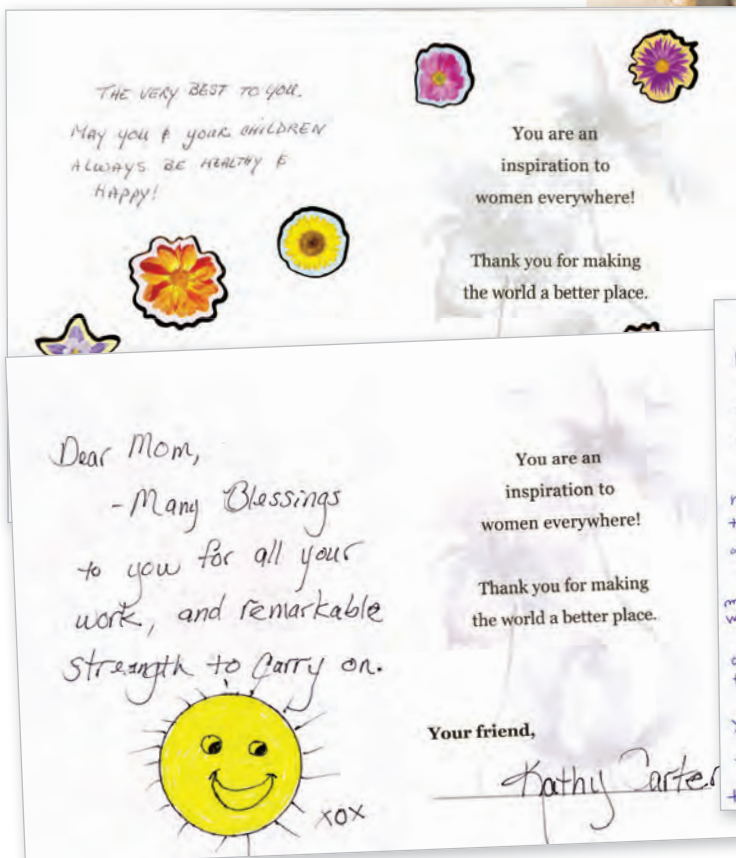 THE VERY BEST TO YOU.
MAY YOU & YOUR CHILDREN
ALWAYS BE HEALTHY &
HAPPY!
You are an
inspiration to
women everywhere!
Thank you for making
the world a better place.
Dear Mom,
- Many Blessings
to you for all your
work, and remarkable
streangth to Carry on.
xox
You are an
inspiration to
women everywhere!
Thank you for making
the world a better place.
Your friend,
Kathy Carter